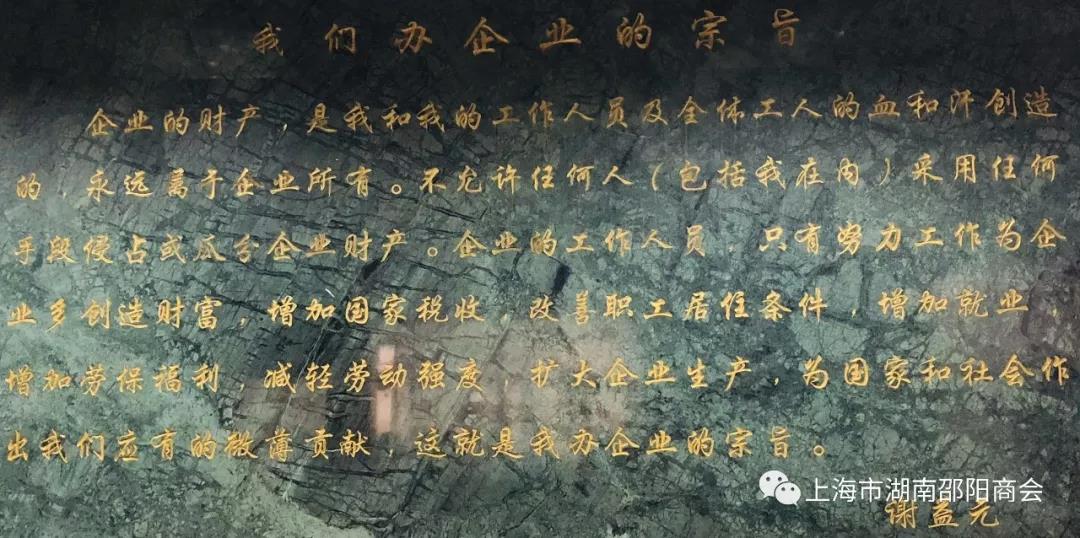 我们办企业的宗旨
企业的财产，是我和我的工作人员及全体工人的血和汗创造
的，永远属于企业所有。不允许任何人（包括我在内）采用任何
手段侵占或瓜分企业财产。企业的工作人员，只有努力工作为企
业多创造财富，增加国家税收，改善职工居住条件，增加就业，
增加劳保福利，减轻劳动强度，扩大企业生产，为国家和社会作
出我们应有的微薄贡献，这就是我办企业的宗旨。
上海市湖南邵阳商会
谢益元